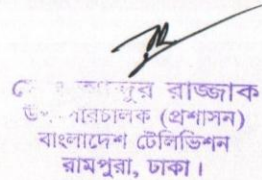 আব্দুর রাজ্জাক
উপ-পরিচালক (প্রশাসন)
বাংলাদেশ টেলিভিশন
রামপুরা, ঢাকা।